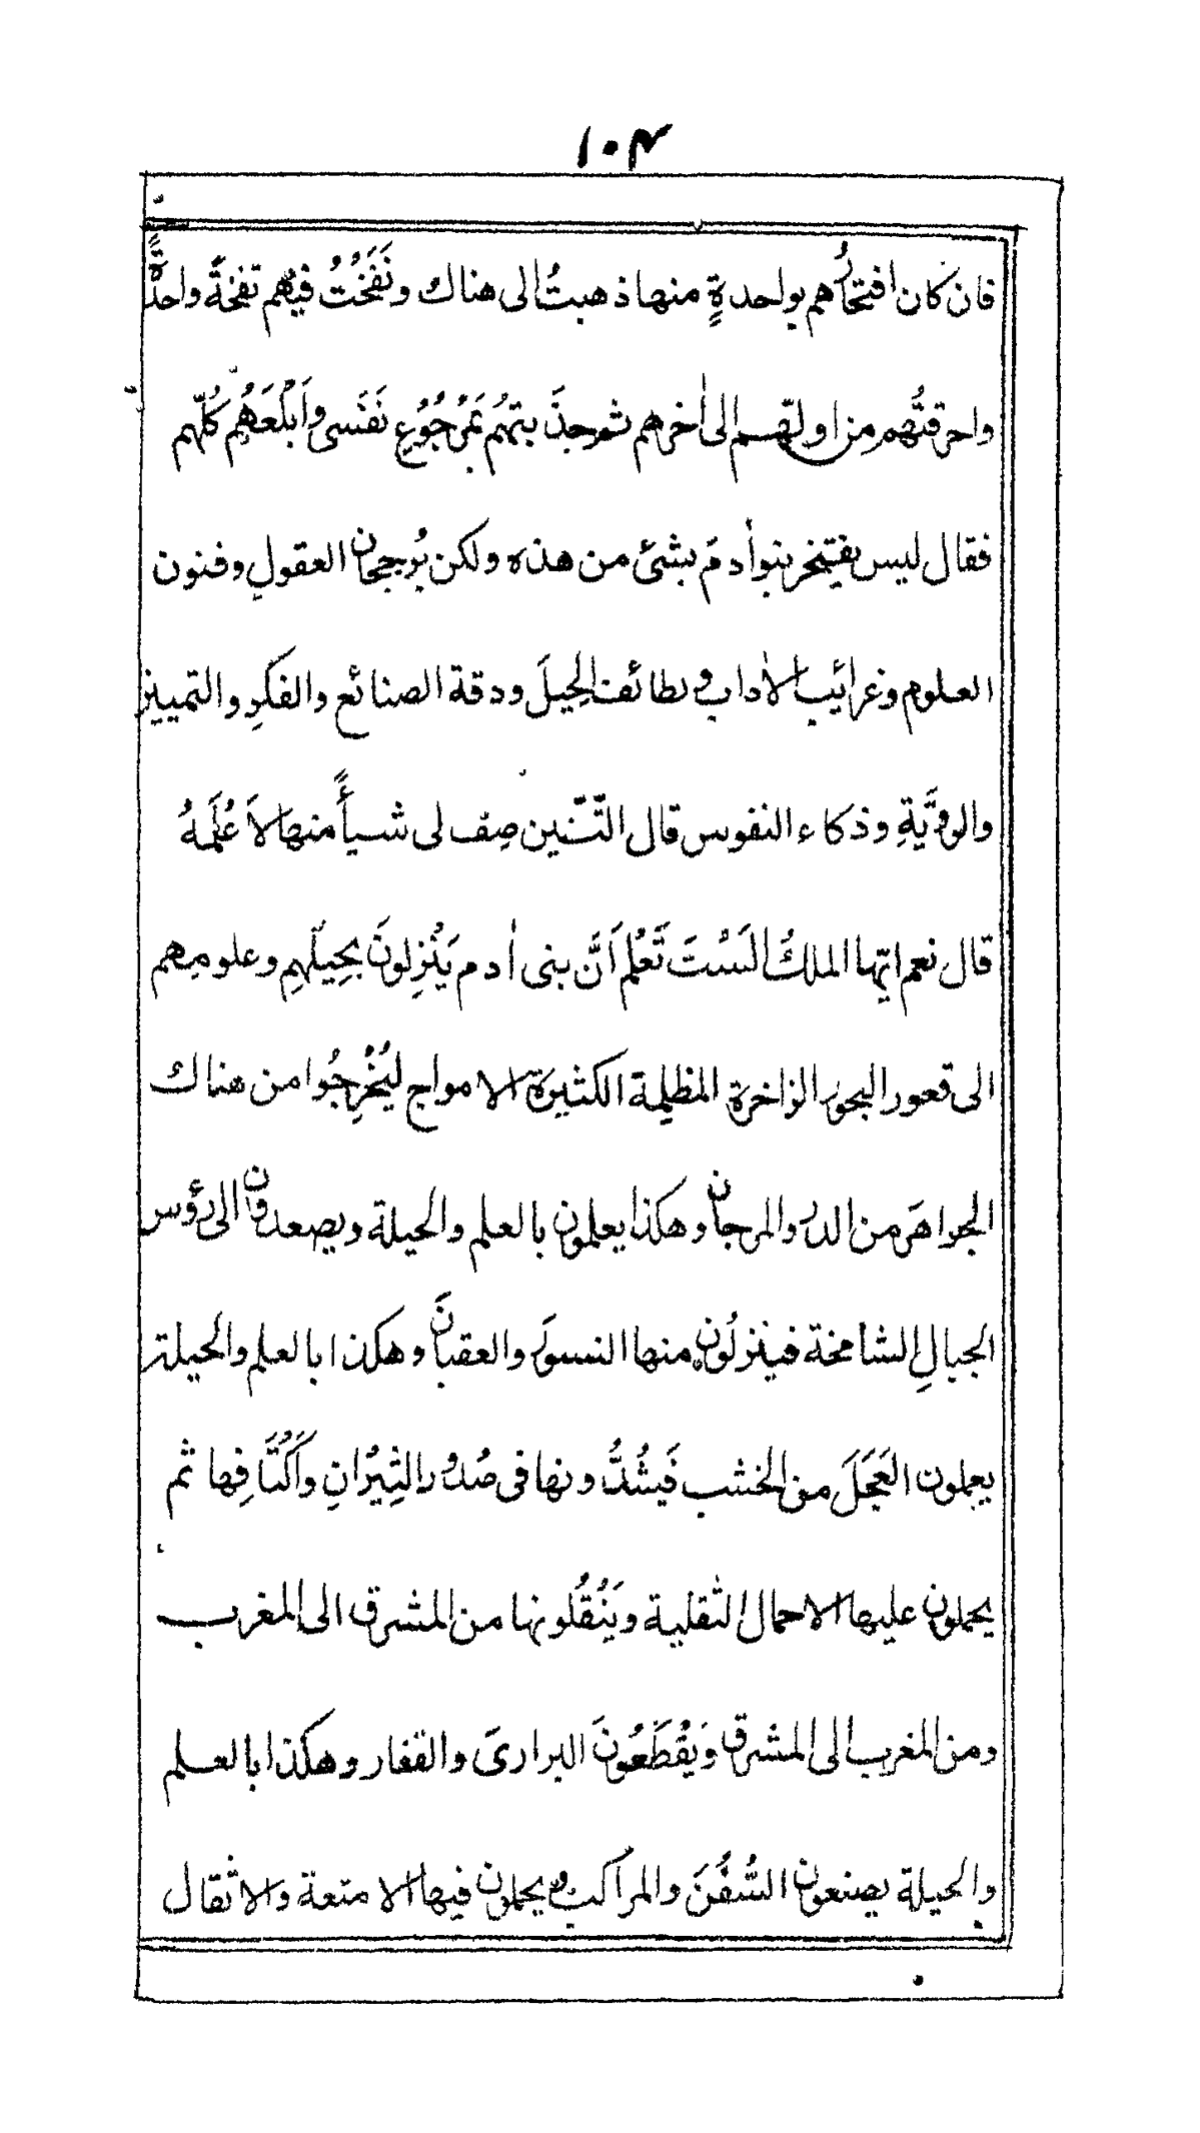 ١٠٤
فان كان افتخارُهم بواحدةٍ منها ذهبتُ الى هناك ونَفَخْتُ فيهم نفخةً واحدةً
واحرقتُهم من اولهم الى اٰخرهم ثم جذَبتُهُم بَمرْجُوُعِ نَفَسى واَبْلَعَهُم كُلّهم
فقال ليس يفتخر بنواٰدمَ بشئ من هذه ولكن بُرجحان العقولِ وفنون
العلوم وغرائب الاٰداب ولطائف الحِيلَ ودقة الصنائع والفكرِ والتمييز
والروَيَّةِ وذكاء النفوس قال التّنّين صِف لى شيأً منها لاَعْلَمَهُ
قال نعم ايّها الملكُ الَسْتَ تَعْلم اَنَّ بنى اٰدم يَنْزِلونَ بحِيَلهِم وعلومِهم
الى قعور البحور الزاخرة المظلِمة الكثيرة الامواج ليُخْرِجُوا من هناك
الجواهرَ من الدر والمرجان وهكذا يعلمون بالعلم والحيلة ويصعدون الى رؤس
الجبالِ الشامخة فينزلُون منها النسورَ والعقبانَ وهكذا بالعلم والحيلة
يعملون العَجَلَ من الخشب فَيشُدُّونها فى صُدُورِ الثِيْرَانِ واَكْتَافِها ثم
يحملون عليها الاحمال الثقلية ويَنْقُلونها من المشرق الى المغرب
ومن المغرب الى المشرق وَيقْطَعُونَ البرارىَ والقفار وهكذا بالعلم
والحيلة يصنعون السُّفُنَ والمراكبَ ويحملون فيها الامتعة والاثقال